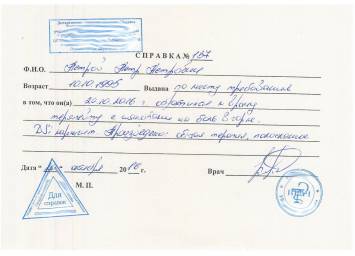 СПРАВКА № 157
Ф.И.О. Петров Петр Петрович
Возраст 10.10.1995 Выдана по месту требования
в том, что он(а) 20.10.2016 г. обратился к врачу
терапевту с жалобами на боль в горле.
DS: ларингит Произведено: общая терапия, полоскание
Дата " " октября 2016 г. Врач
М. П.
Для
справок